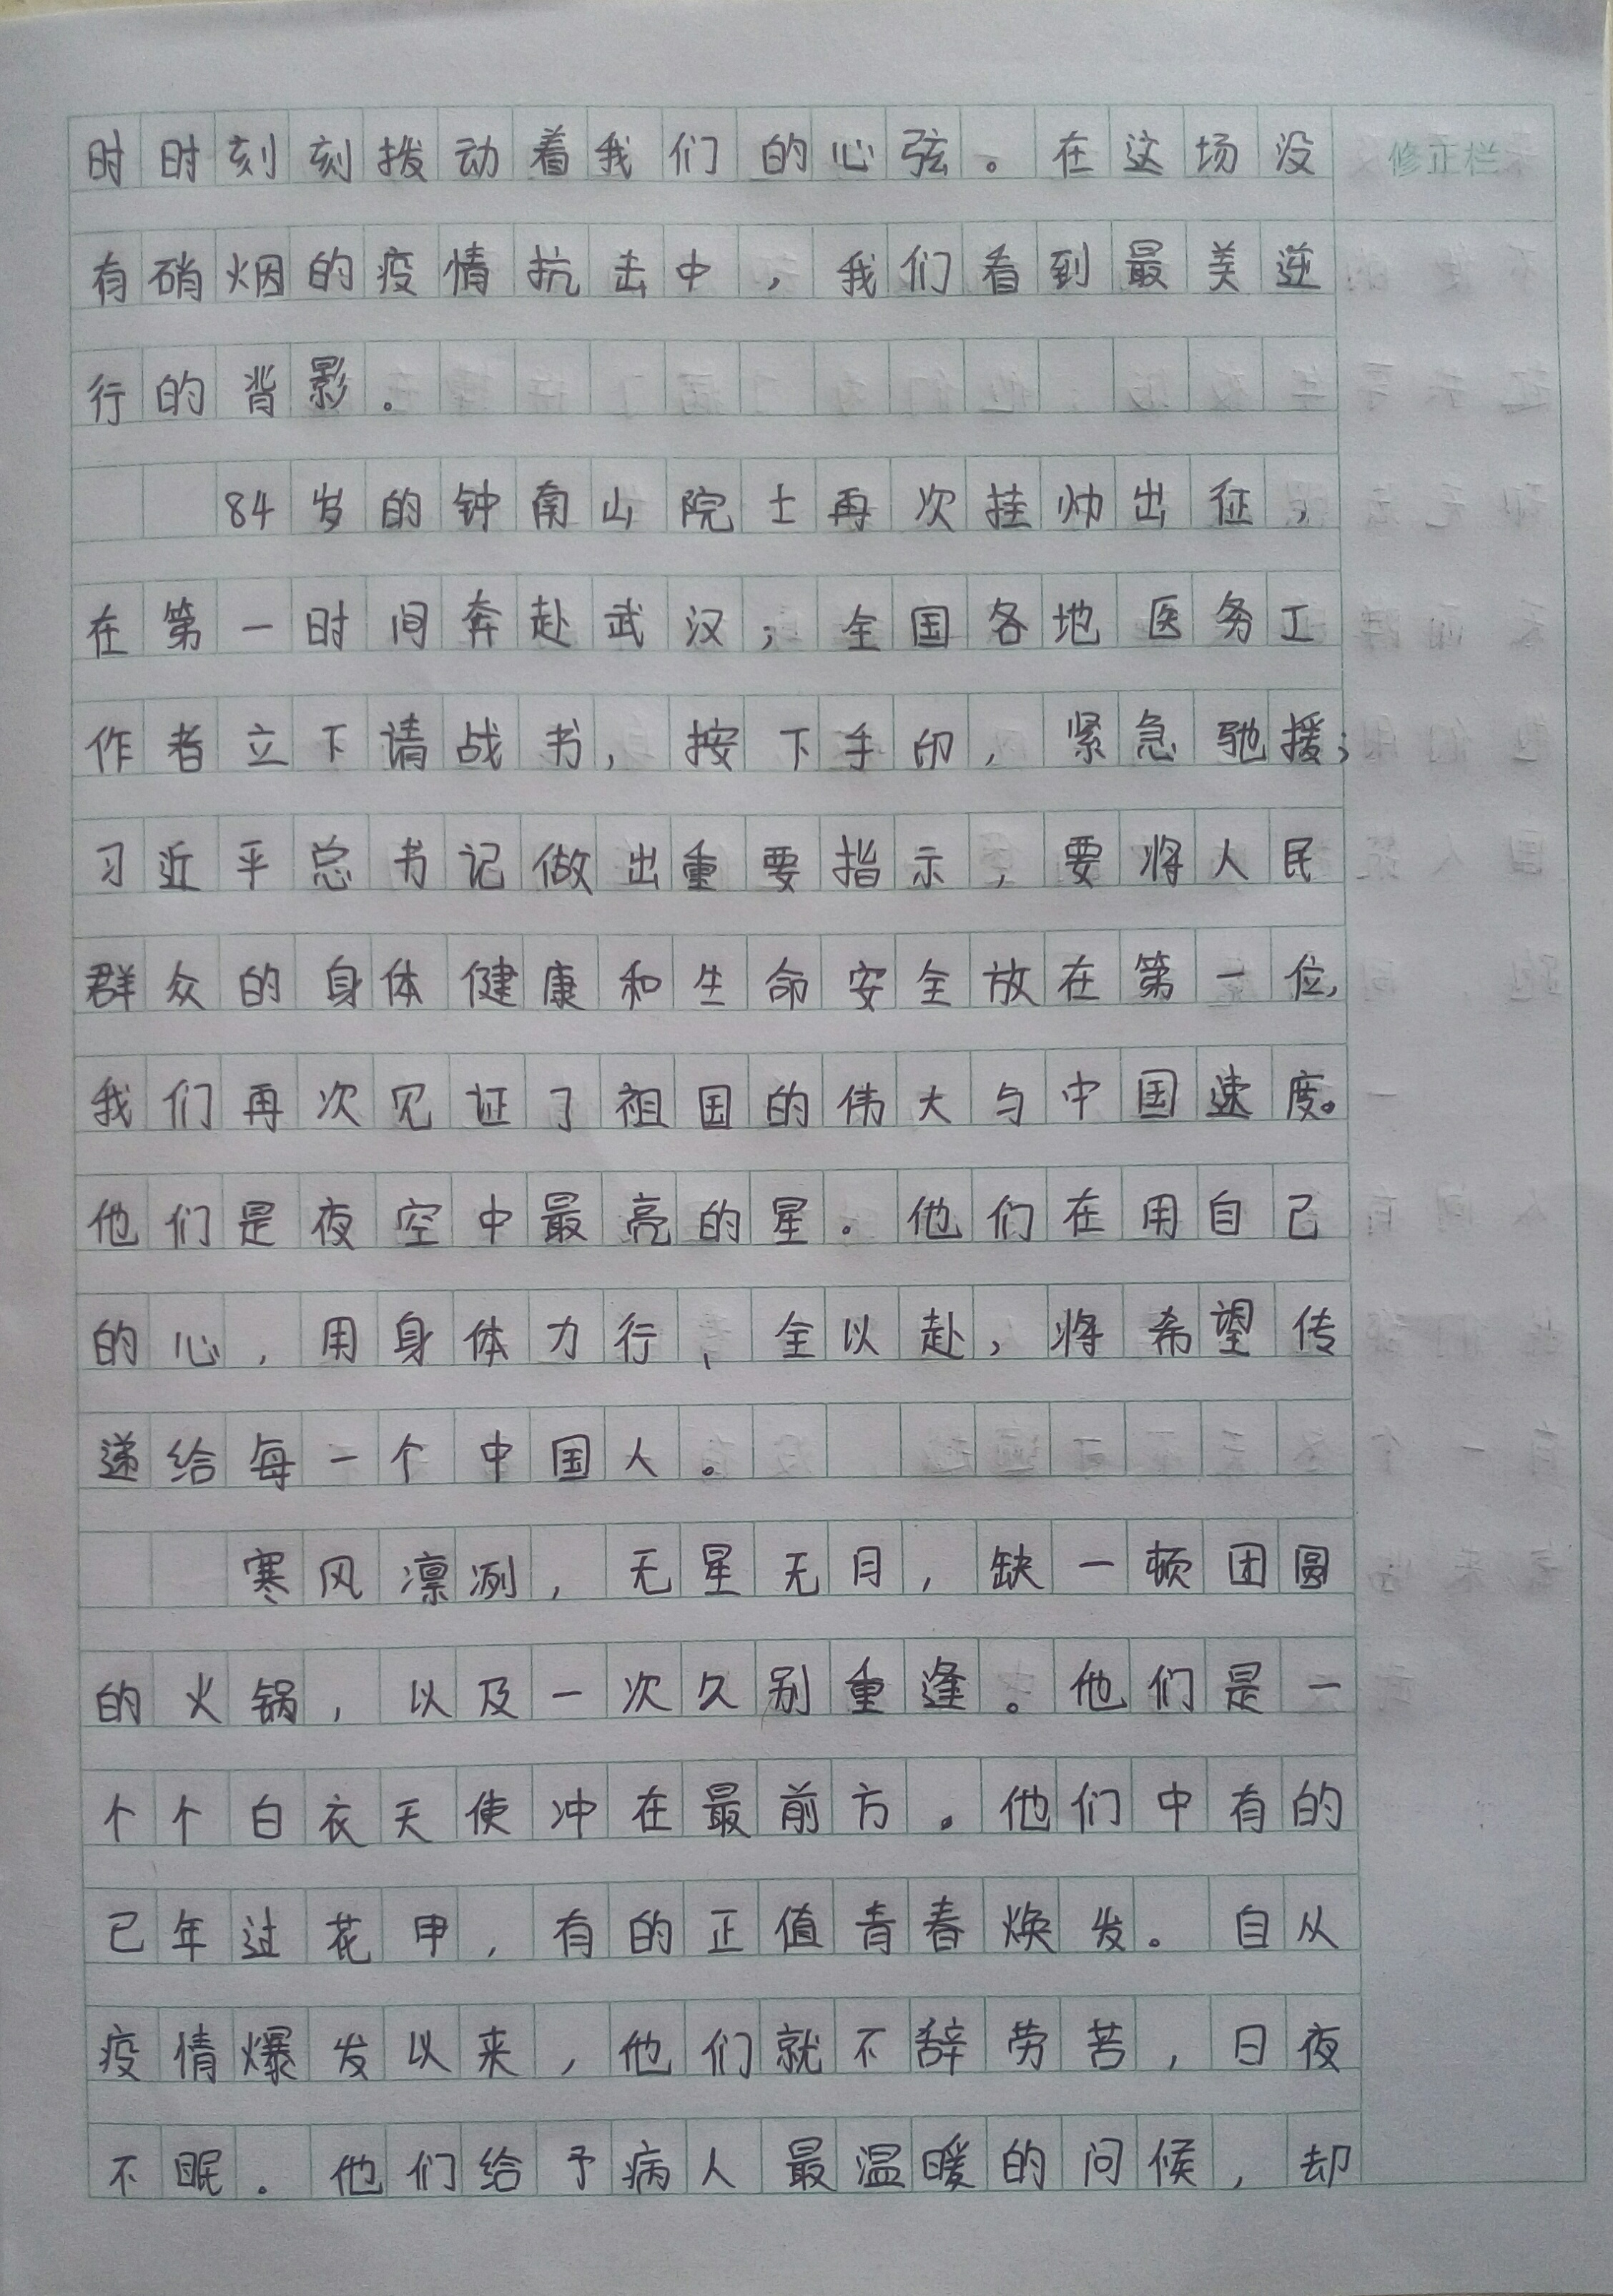 时时刻刻拨动着我们的心弦。在这场没
修正栏
有硝烟的疫情抗击中，我们看到最美逆
行的背影。
84岁的钟南山院士再次挂帅出征，
在第一时间奔赴武汉；全国各地医务工
作者立下请战书，按下手印，紧急驰援；
习近平总书记做出重要指示，要将人民
群众的身体健康和生命安全放在第一位，
我们再次见证了祖国的伟大与中国速度。
他们是夜空中最亮的星。他们在用自己
的心，用身体力行、全以赴，将希望传
递给每一个中国人。
寒风凛冽，无星无月，缺一顿团圆
的火锅，以及一次久别重逢。他们是一
个个白衣天使冲在最前方。他们中有的
已年过花甲，有的正值青春焕发。自从
疫情爆发以来，他们就不辞劳苦，日夜
不眠。他们给予病人最温暖的问候，却